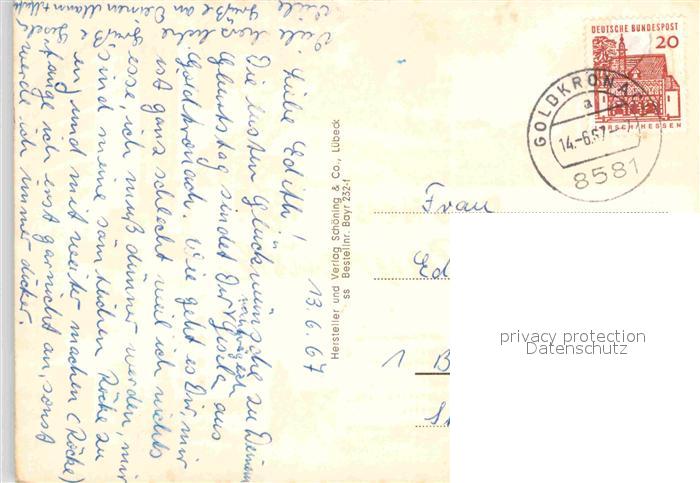 13.6.67
Liebe Edith!
Die besten Glückwünsche zu Deinem
nachträglich
Geburtstag sendet Dir Gisela aus
Goldkronach. Wie geht es Dir, mir
ist ganz schlecht weil ich nichts
esse, ich muß dünner werden, mir
sind meine sämtlichen Röcke zu
eng und mit weiter machen (Röcke)
fange ich erst garnicht an, sonst
werde ich immer dicker.
Viele herzliche
Grüße
Viele
Grüße an Deinen Mann
Hersteller und Verlag Schöning & Co., Lübeck
ss Bestellnr. Bayr 232-f
DEUTSCHE BUNDESPOST
20
LORSCH/HESSEN
GOLDKRONACH
a
14.-6.67
8581
Frau
Ed
1 B
privacy protection
Datenschutz